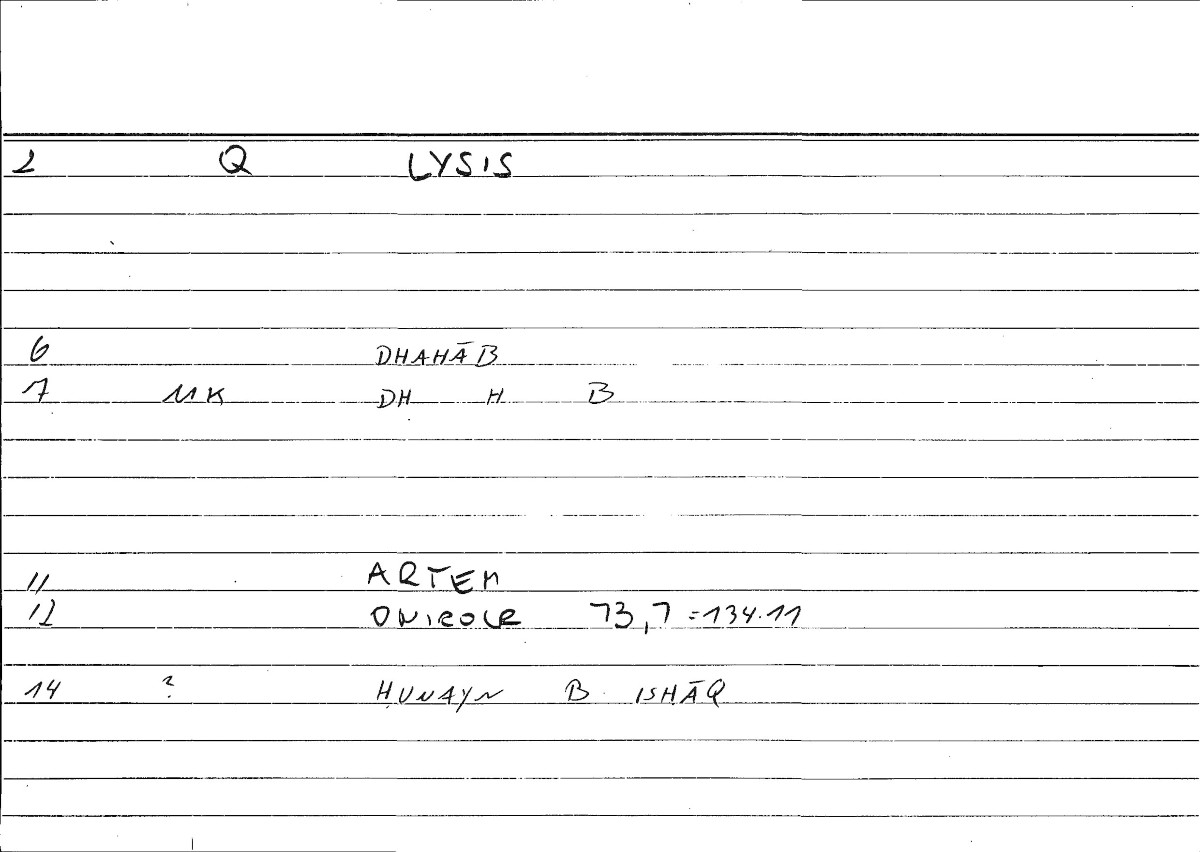 2 Q LYSIS
6 DHAHĀB
7 MK DH H B
11 ARTEM
12 ONIROCR 73,7 = 134.11
14 ? ḤUNAYN B. ISḤĀQ